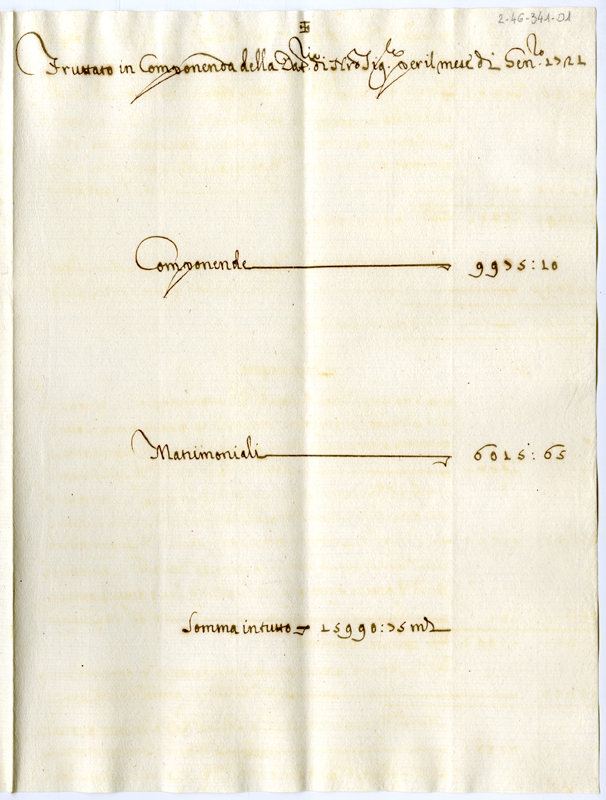 2-46-341-01
Fruttato in Componenda della Dat.ria di Nro Sig.re per il mese di Genn.ro 1721
Componende 9975:10
Matrimoniali 6015:65
Somma in tutto 15990:75